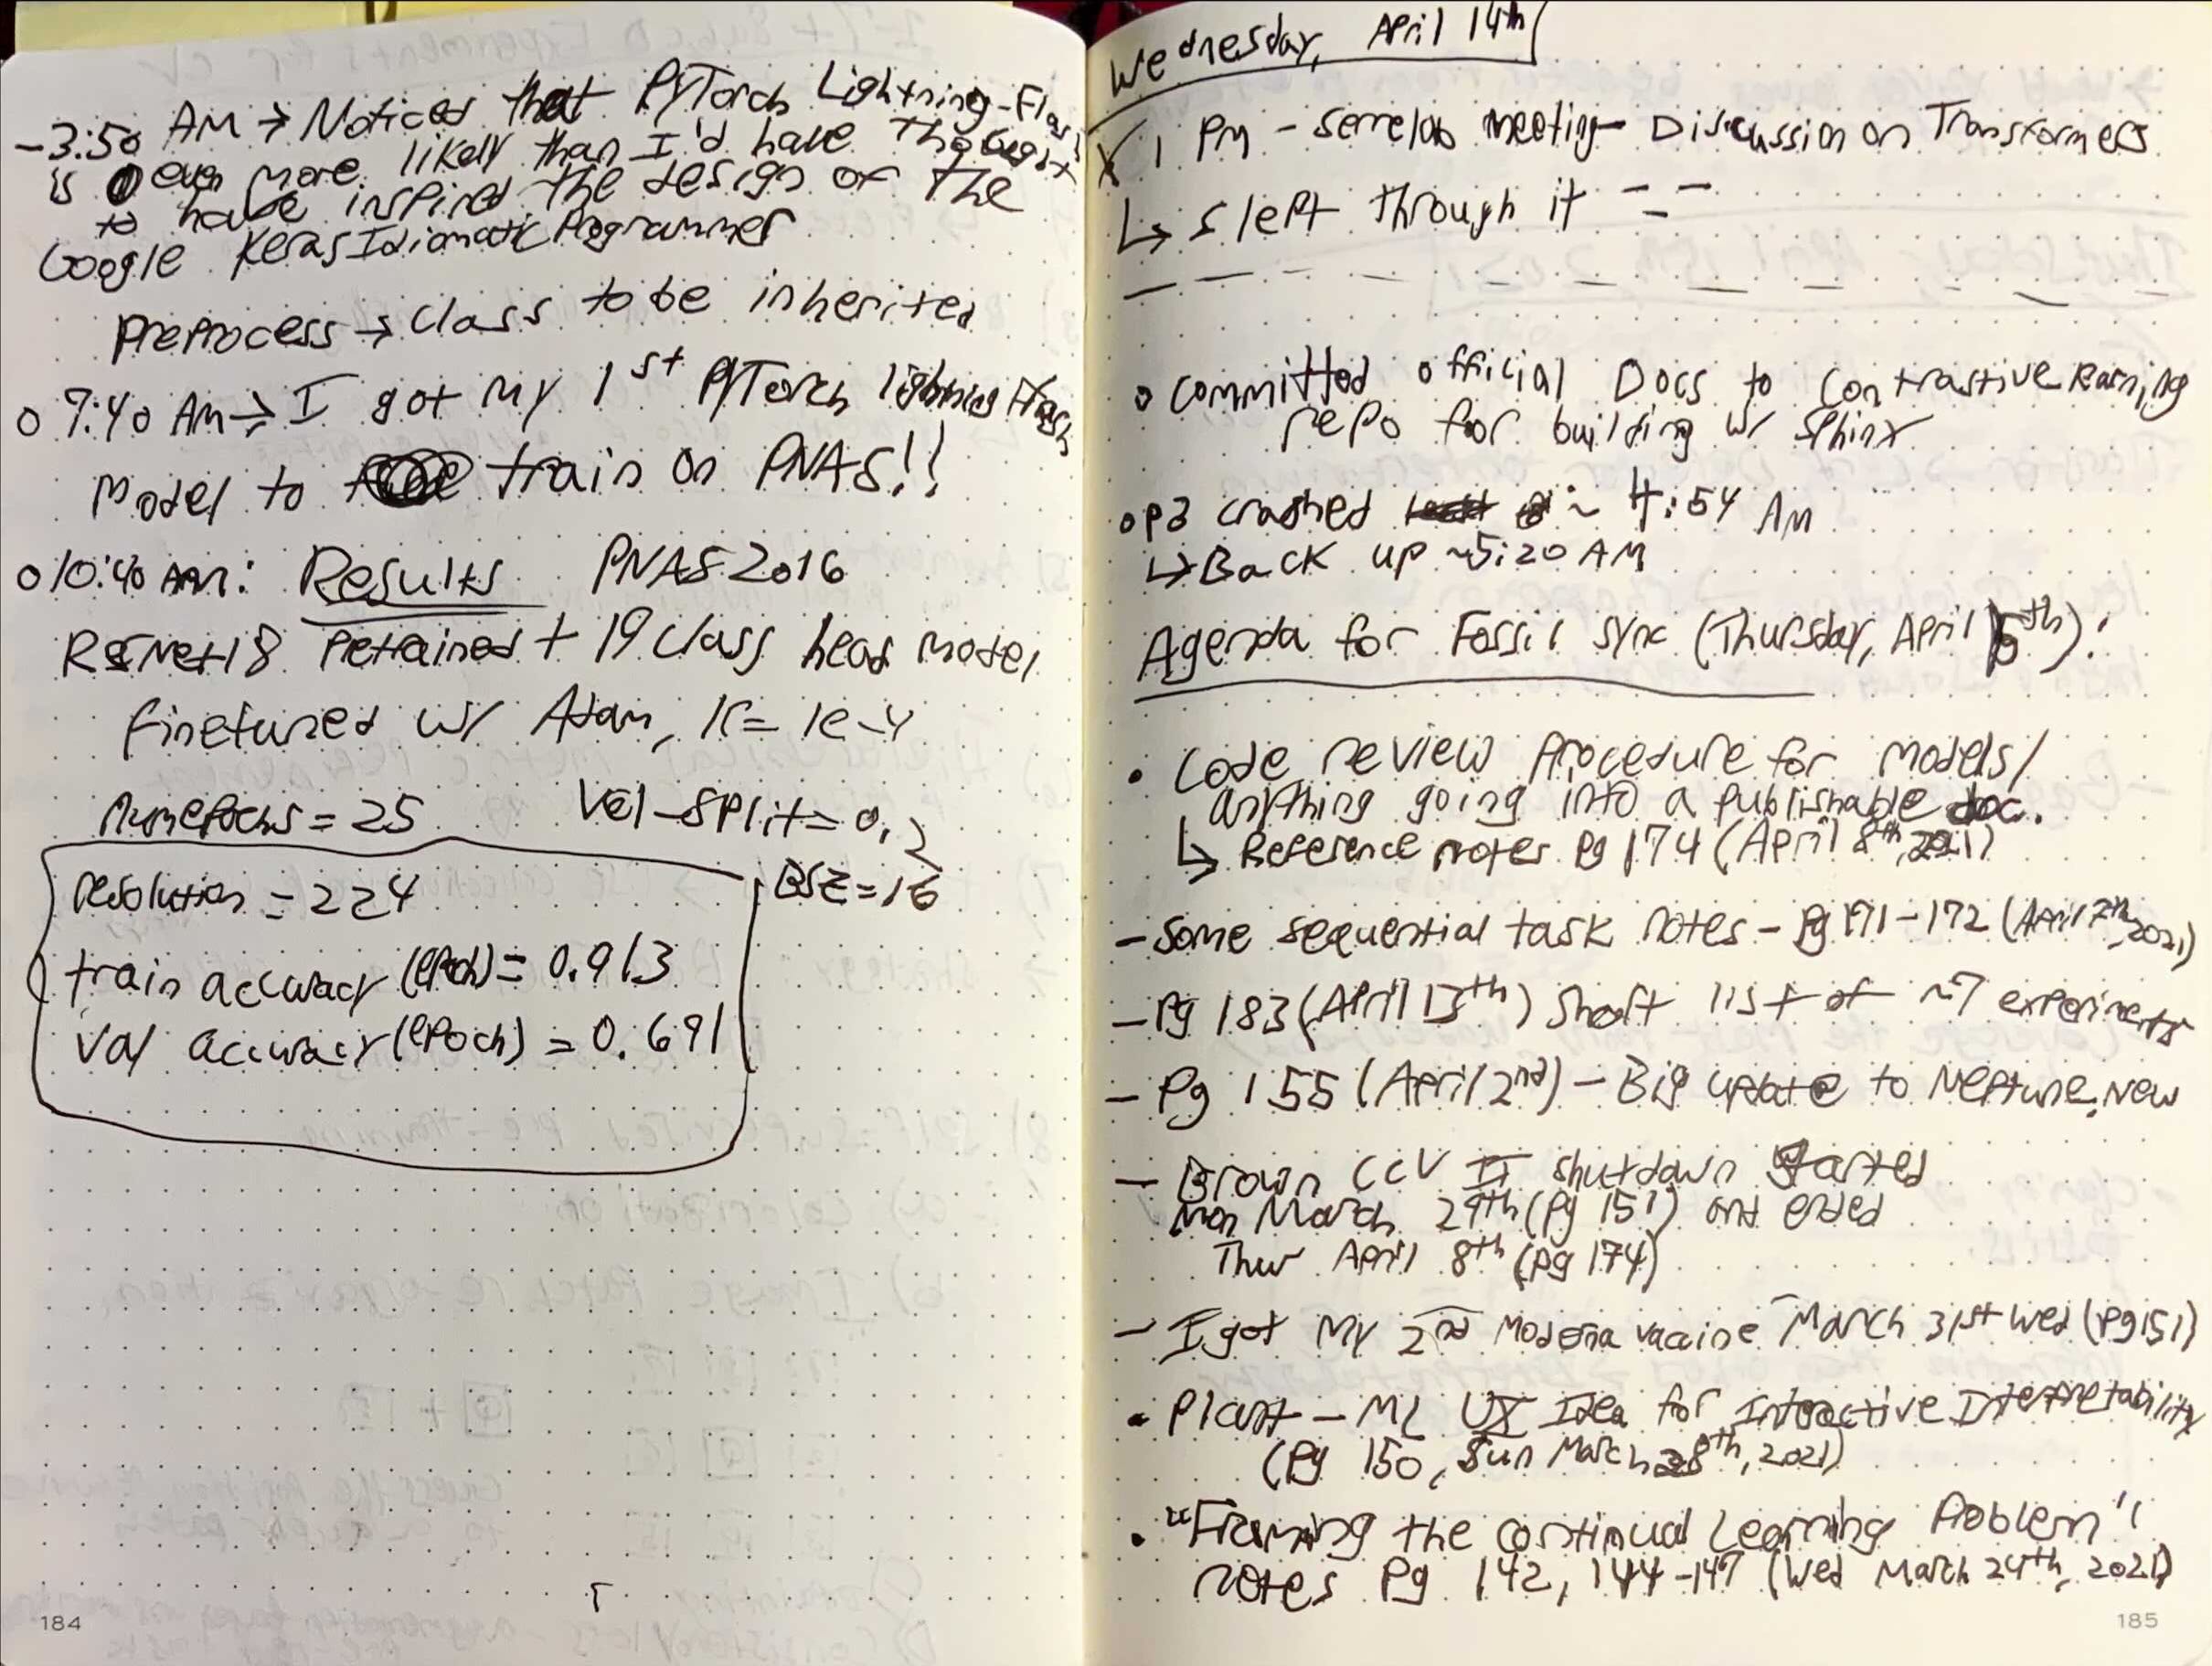 -3:50 AM → Noticed that PyTorch Lightning-Flash
is even more likely than I'd have thought
to have inspired the design of the
Google Keras Idiomatic Programmer
Preprocess → class to be inherited
o 9:40 AM → I got my 1st PyTorch lightning flash
Model to train on PNAS!!
o 10:40 AM: Results PNAS 2016
ResNet18 Pretrained + 19 class head model
finetuned w/ Adam, lr = 1e-4
numepochs = 25 val-split = 0.2
BSZ = 16
resolution = 224
train accuracy (epoch) = 0.913
val accuracy (epoch) = 0.691
184
Wednesday, April 14th
X 1 PM - serrelab meeting - Discussion on Transformers
↳ slept through it
o committed official Docs to contrastive learning
repo for building w/ sphinx
o p3 crashed ~ 4:54 AM
↳ Back up ~5:20 AM
Agenda for Fossil sync (Thursday, April 15th):
• Code review Procedure for models/
anything going into a publishable doc.
↳ Reference notes pg 174 (April 8th, 2021)
- Some sequential task notes - pg 171-172 (April 7th, 2021)
- Pg 183 (April 13th) Short list of ~7 experiments
- Pg 155 (April 2nd) - Big update to Neptune.new
- Brown CCV IT shutdown started
Mon March 29th (pg 151) and ended
Thur April 8th (pg 174)
- I got my 2nd Moderna vaccine March 31st Wed (pg 151)
• Plant - ML UX Idea for Interactive Interpretability
(Pg 150, Sun March 28th, 2021)
• "Framing the continual Learning Problem"
notes Pg 142, 144-147 (Wed March 24th, 2021)
185